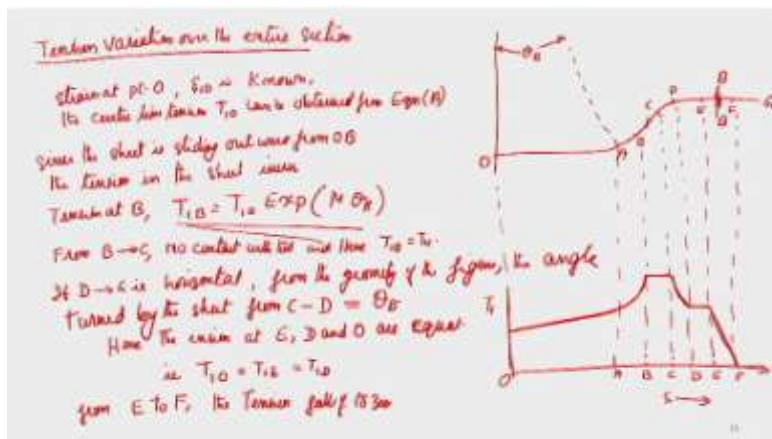 Tension variation over the entire section
strain at pt. O, ε₁₀ is known.
The centre line tension T₁₀ can be obtained from Eqn(A)
Since the sheet is sliding outward from OB
the tension in the sheet
Tension at B, T₁B = T₁₀ Exp(μ θB)
From B → C, no contact with tool and hence
If D → G is horizontal, from the geometry of the figure, the angle
turned by the sheet from C - D = θB
Hence the tension at E, D and O are equal
ie T₁₀ = T₁E = T₁D
from E to F, the Tension falls to zero
θB
O
A
B
C
D
E
F
G
B
B
T₁
O
A B C D E F
S →